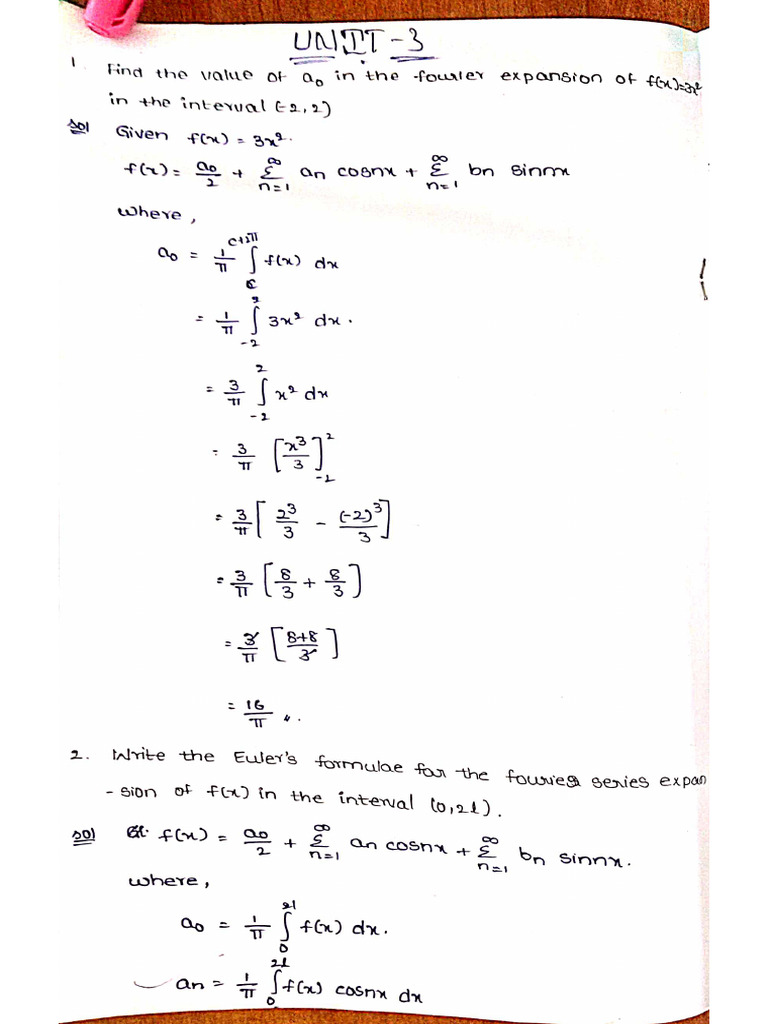 UNIT-3
1 Find the value of a₀ in the fourier expansion of f(x)=3x²
in the interval (-2,2)
Sol Given f(x) = 3x².
f(x) = a₀/2 + ∞Σn=1 an cosnx + ∞Σn=1 bn sinnx
where,
a₀ = 1/π ∫_c^{c+2π} f(x) dx
= 1/π ∫_{-2}^{2} 3x² dx.
= 3/π ∫_{-2}^{2} x² dx
= 3/π [x³/3]_{-2}^{2}
= 3/π [2³/3 - (-2)³/3]
= 3/π [8/3 + 8/3]
= 3/π [8+8/3]
= 16/π
2. Write the Euler's formulae for the fourier series expan
-sion of f(x) in the interval (0,2l).
Sol f(x) = a₀/2 + ∞Σn=1 an cosnx + ∞Σn=1 bn sinnx.
where,
a₀ = 1/π ∫_0^{2l} f(x) dx.
an = 1/π ∫_0^{2l} f(x) cosnx dx